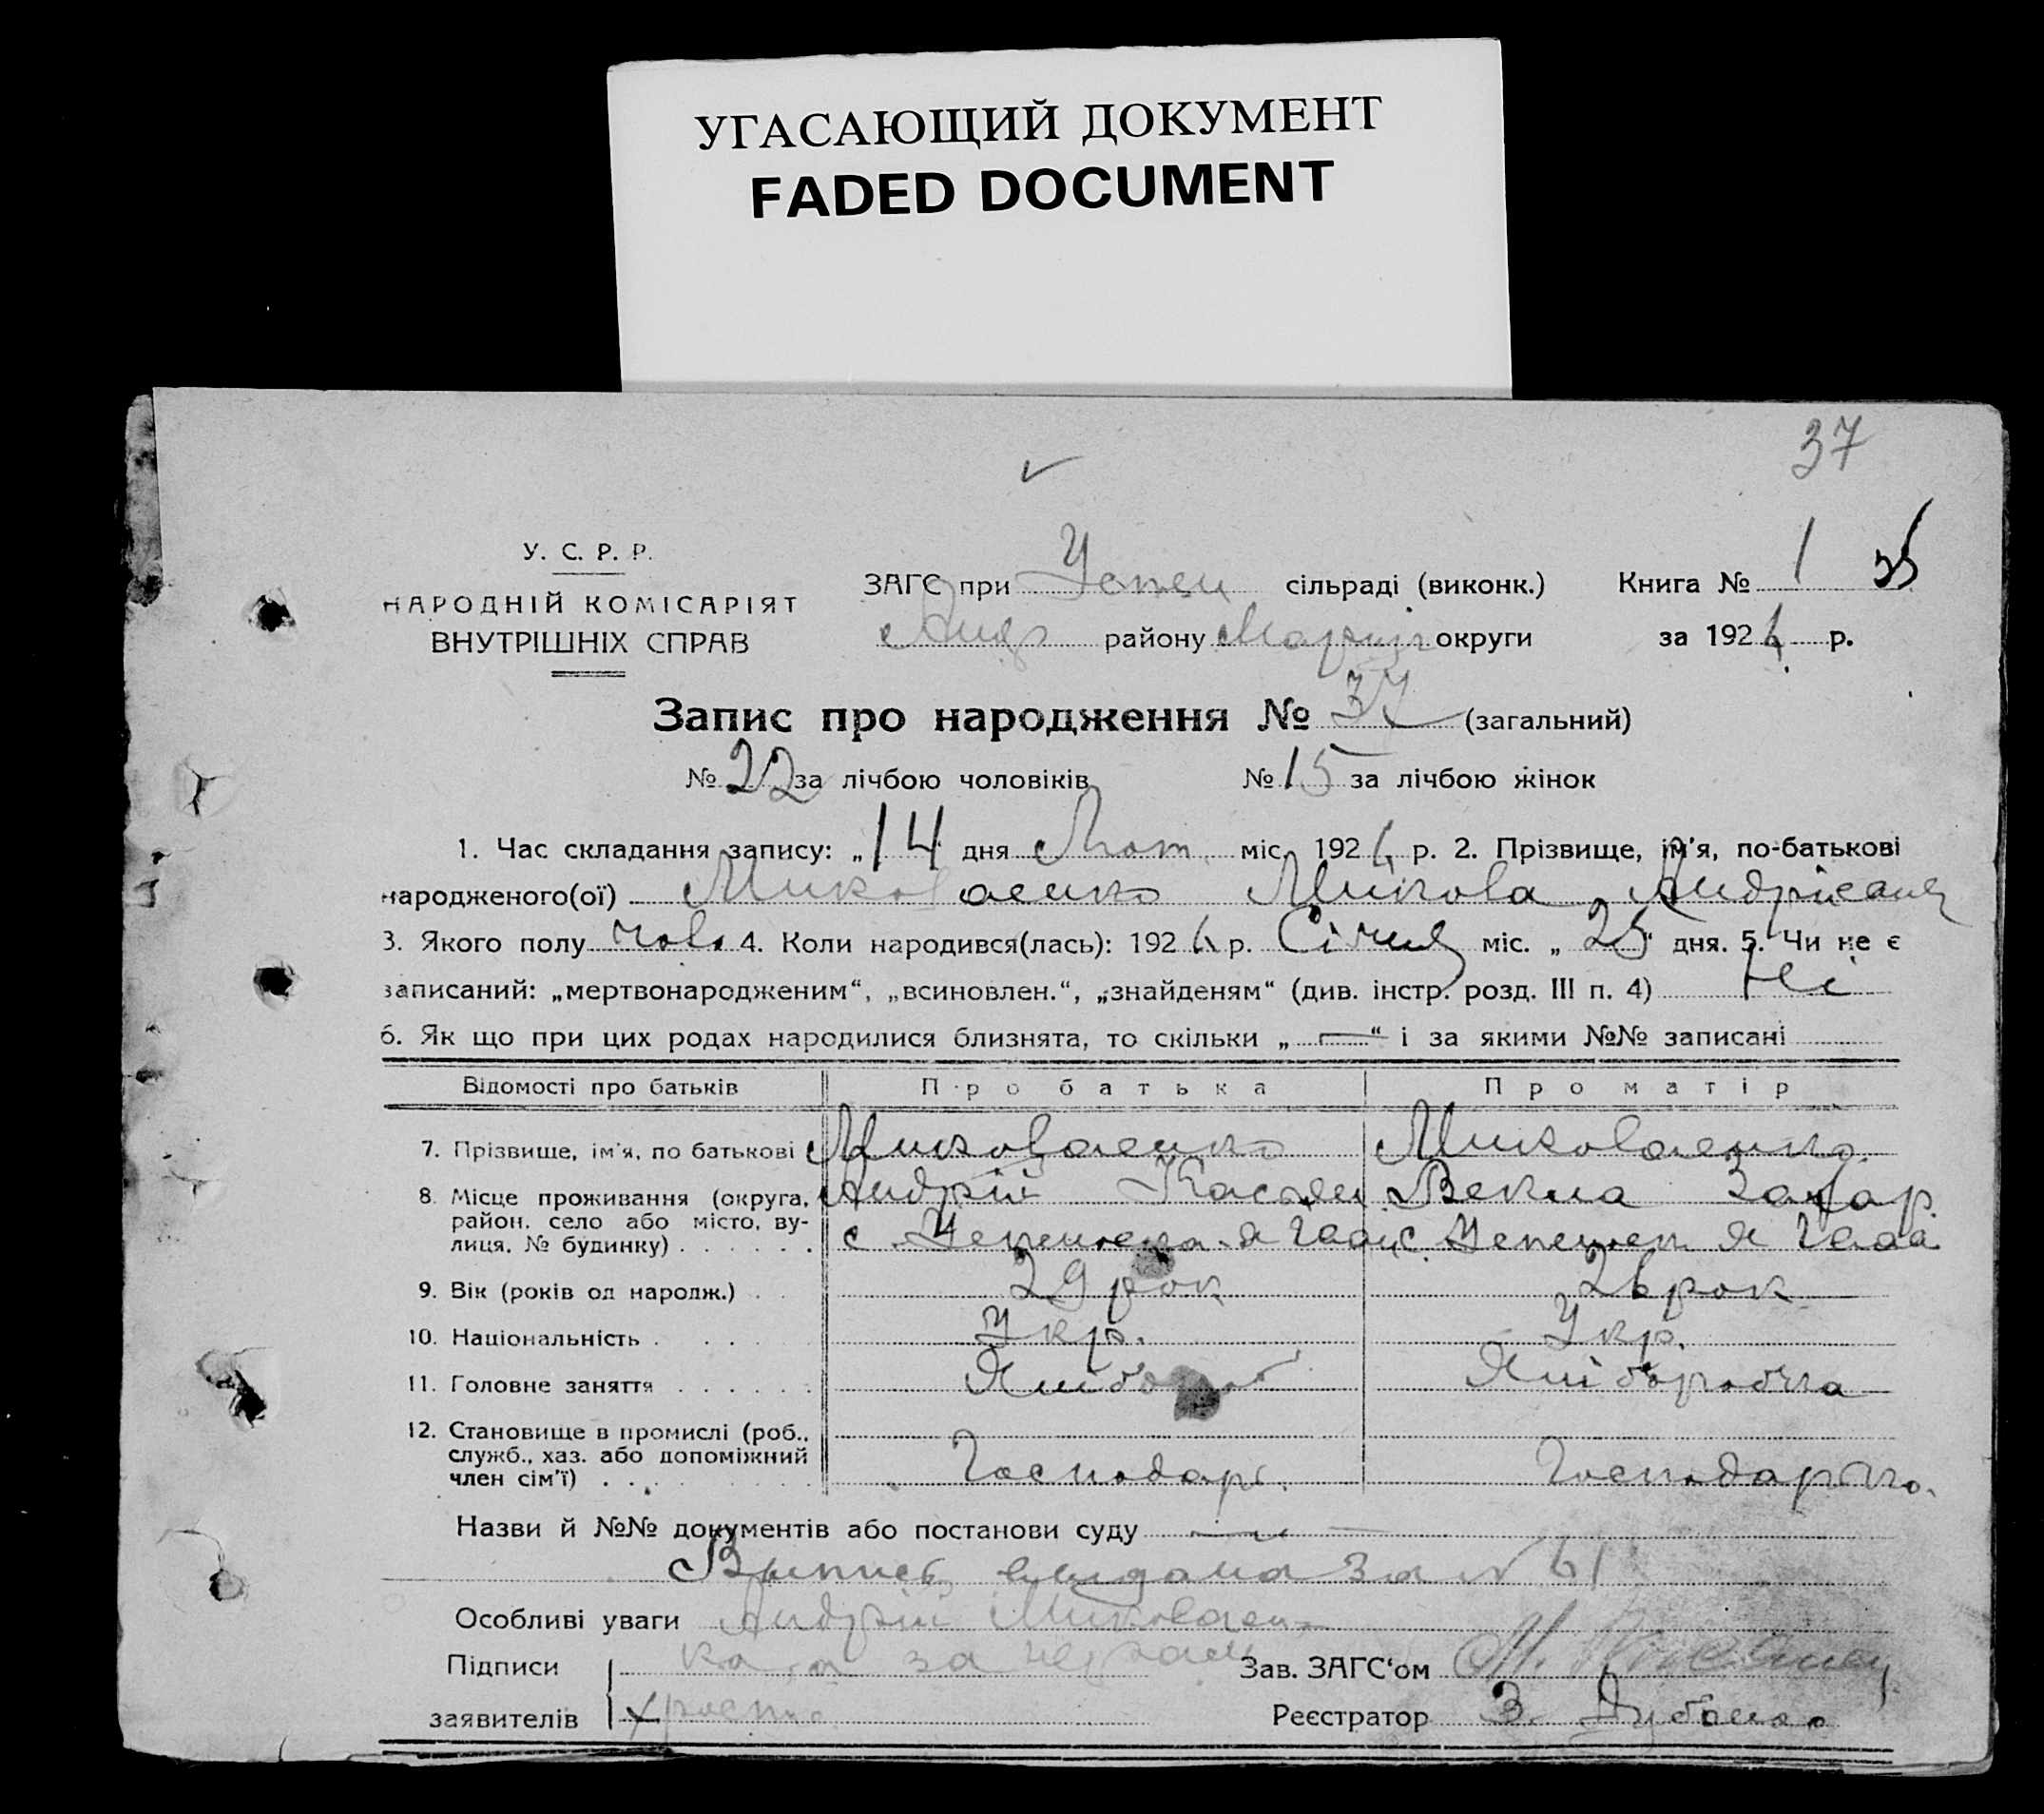 УГАСАЮЩИЙ ДОКУМЕНТ
FADED DOCUMENT
37
У. С. Р. Р.
НАРОДНІЙ КОМІСАРІЯТ
ВНУТРІШНІХ СПРАВ
ЗАГС при Успен сільраді (виконк.) Книга № 1
району Маріуп округи за 1926 р.
Запис про народження № 37 (загальний)
№ 22 за лічбою чоловіків № 15 за лічбою жінок
1. Час складання запису: „14 дня Лют. міс. 1926 р. 2. Прізвище, ім'я, по-батькові
народженого(ої) Миколаенко Микола Андріевич
3. Якого полу чол. 4. Коли народився(лась): 1926 р. Січня міс. „25“ дня. 5. Чи не є
записаний: „мертвонародженим“, „всиновлен.“, „знайденям“ (див. інстр. розд. III п. 4) Ні
6. Як що при цих родах народилися близнята, то скільки „ — “ і за якими №№ записані
Відомості про батьків Про батька Про матір
7. Прізвище, ім'я, по батькові Миколаенко Миколаенко
8. Місце проживання (округа, Андрій Касьян Векла Захар.
район, село або місто, ву-
лиця, № будинку) с с
9. Вік (років од народж.) 29 рок 26 рок
10. Національність Укр. Укр.
11. Головне заняття Хлібороб Хліборобка
12. Становище в промислі (роб.,
служб., хаз. або допоміжний Господарь. Господарька.
член сім'ї)
Назви й №№ документів або постанови суду —
Выпись выдана за № 61
Особливі уваги Андрій Миколаен-
Підписи ко, а за Зав. ЗАГС'ом М.
заявителів Реєстратор З.